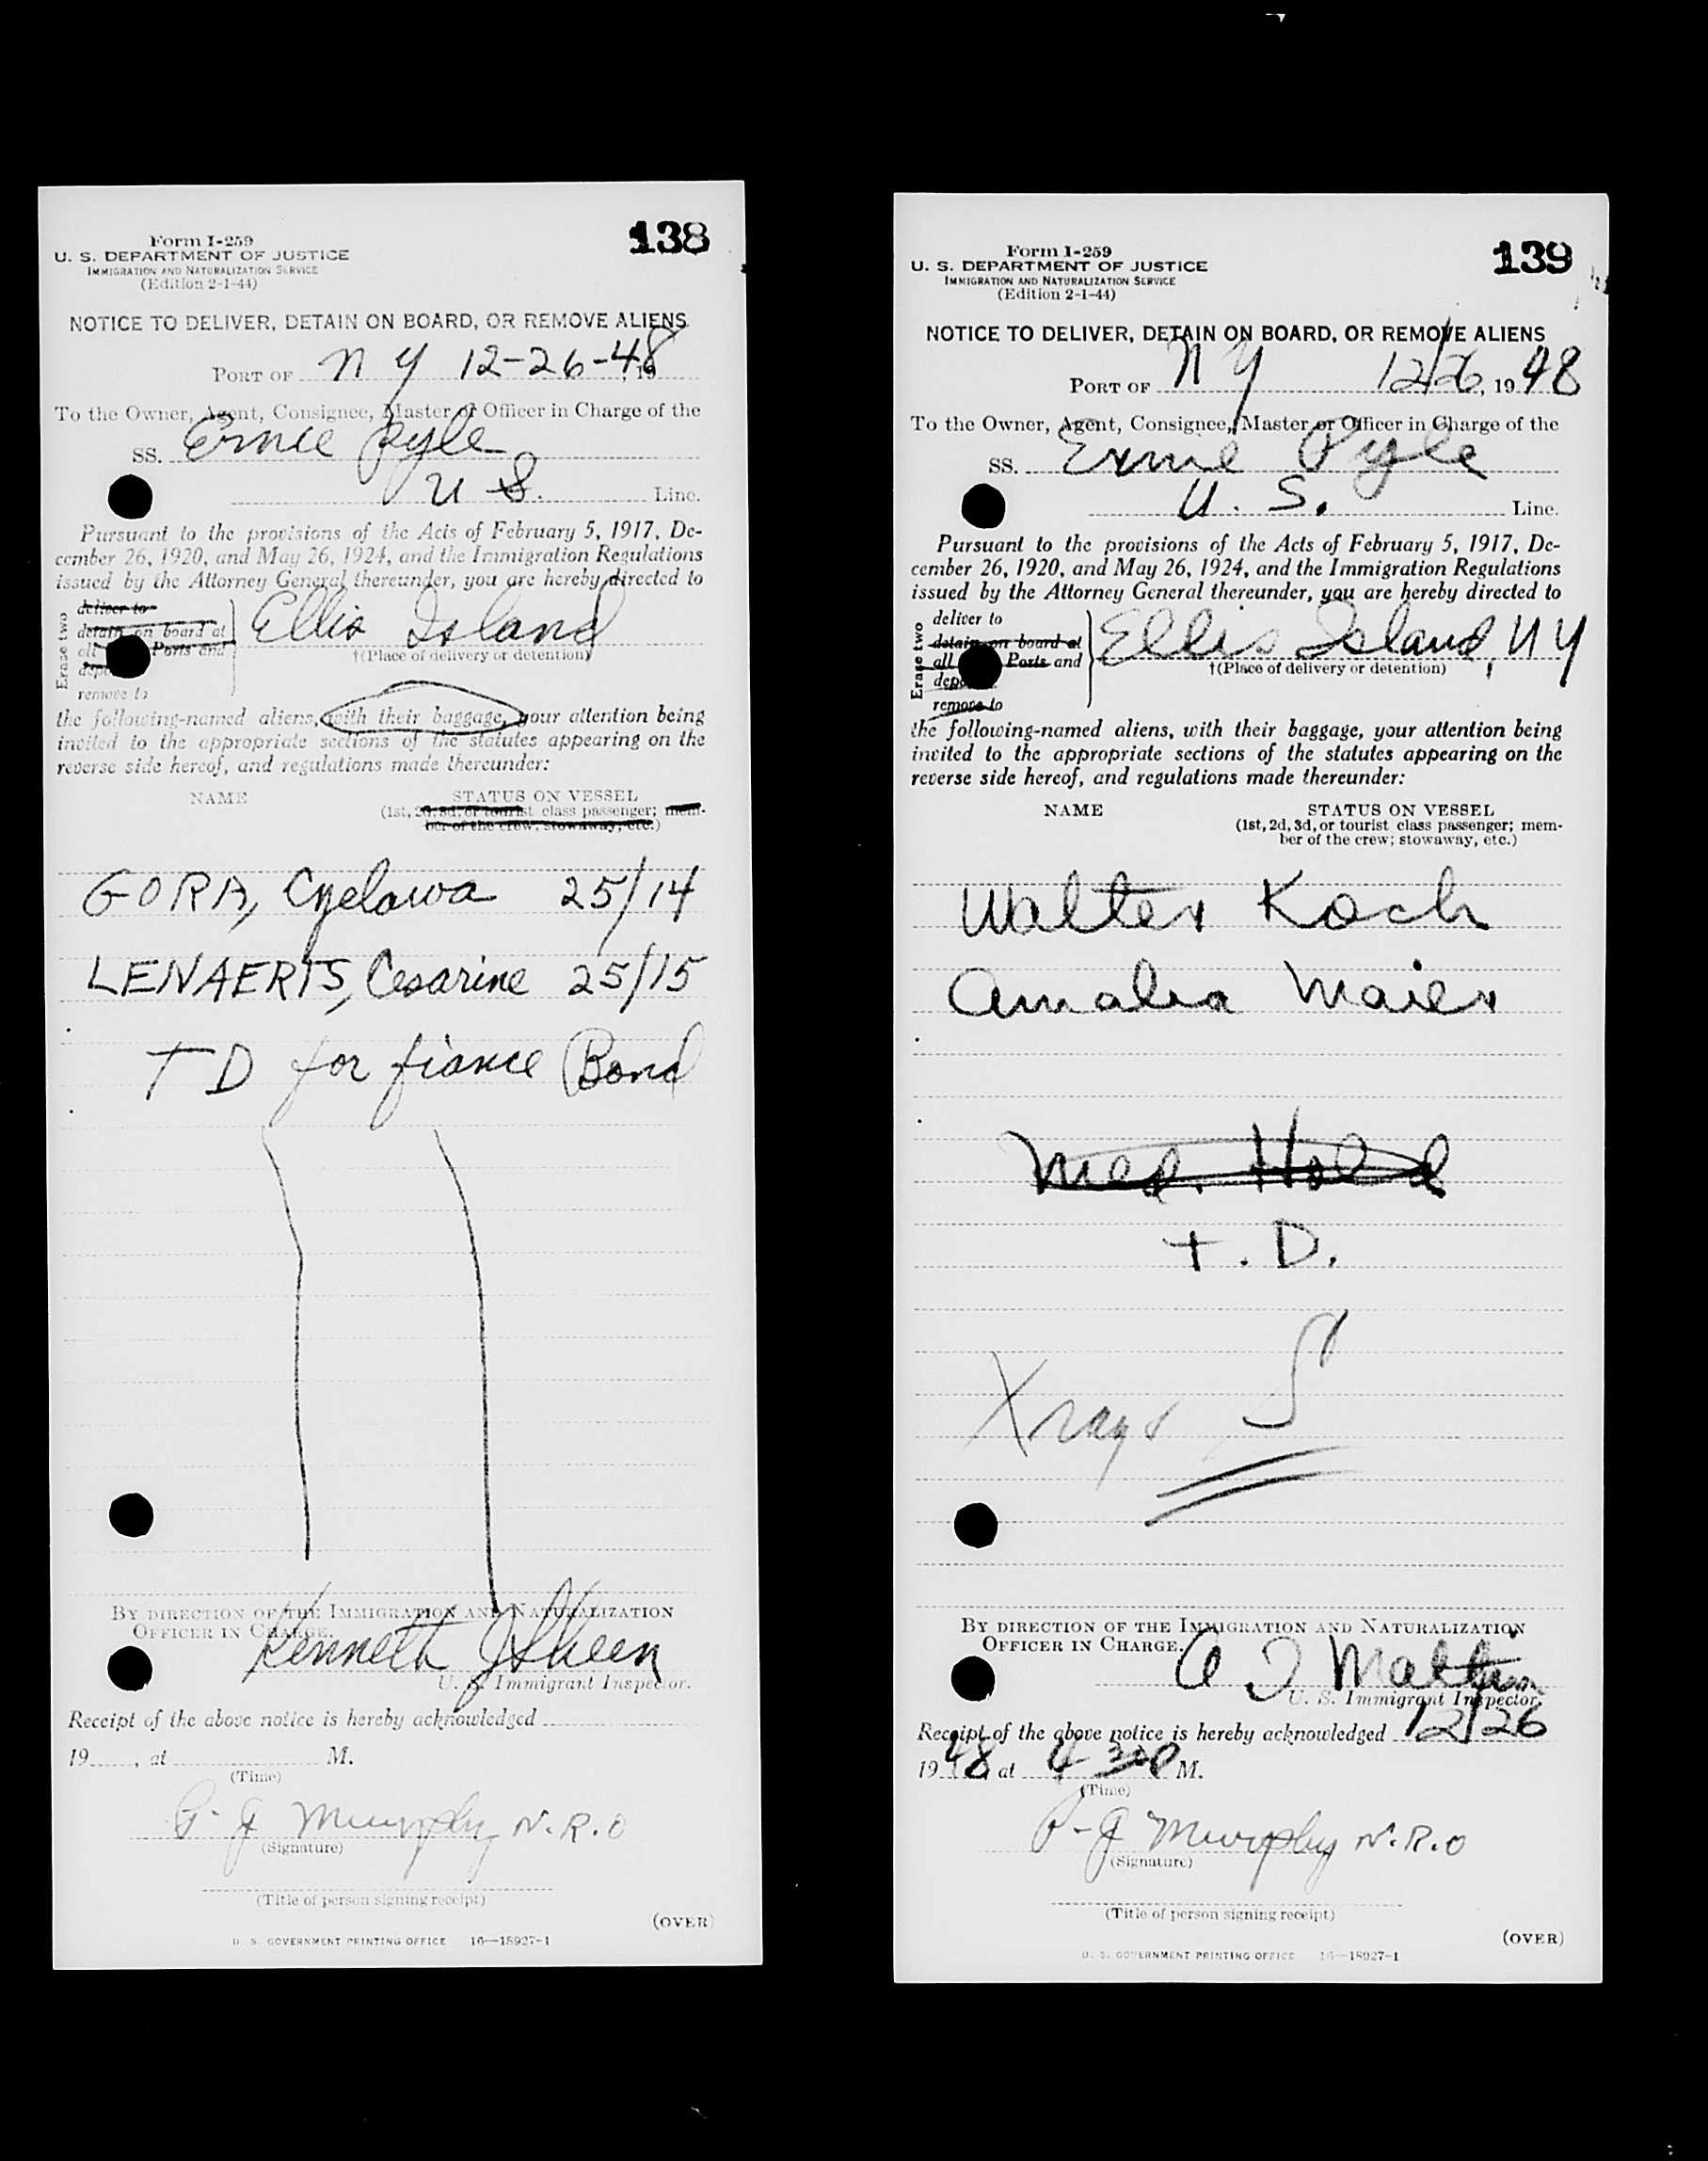 138
Form I-259
U. S. DEPARTMENT OF JUSTICE
IMMIGRATION AND NATURALIZATION SERVICE
(Edition 2-1-44)
NOTICE TO DELIVER, DETAIN ON BOARD, OR REMOVE ALIENS
PORT OF N Y 12-26-48, 19
To the Owner, Agent, Consignee, Master or Officer in Charge of the
SS. Ernie Pyle
U S. Line.
Pursuant to the provisions of the Acts of February 5, 1917, De-
cember 26, 1920, and May 26, 1924, and the Immigration Regulations
issued by the Attorney General thereunder, you are hereby directed to
Erase two
deliver to
detain on board at
all Ports and
remove to
Ellis Island
†(Place of delivery or detention)
the following-named aliens, with their baggage, your attention being
invited to the appropriate sections of the statutes appearing on the
reverse side hereof, and regulations made thereunder:
NAME STATUS ON VESSEL
(1st, 2d, 3d, or tourist class passenger; mem-
ber of the crew; stowaway, etc.)
GORA, 25/14
LENAERTS, Cesarine 25/15
T D for fiance Bond
BY DIRECTION OF THE IMMIGRATION AND NATURALIZATION
OFFICER IN CHARGE.
Kenneth J Skeen
U. S. Immigrant Inspector.
Receipt of the above notice is hereby acknowledged
19 , at M.
(Time)
P-J Murphy N.R.O
(Signature)
(Title of person signing receipt)
(OVER)
U. S. GOVERNMENT PRINTING OFFICE 16—18927-1
139
Form I-259
U. S. DEPARTMENT OF JUSTICE
IMMIGRATION AND NATURALIZATION SERVICE
(Edition 2-1-44)
NOTICE TO DELIVER, DETAIN ON BOARD, OR REMOVE ALIENS
PORT OF N Y 12/26, 1948
To the Owner, Agent, Consignee, Master or Officer in Charge of the
SS. Ernie Pyle
U. S. Line.
Pursuant to the provisions of the Acts of February 5, 1917, De-
cember 26, 1920, and May 26, 1924, and the Immigration Regulations
issued by the Attorney General thereunder, you are hereby directed to
Erase two
deliver to
detain on board at
all Ports and
remove to
Ellis Island, N Y
†(Place of delivery or detention)
the following-named aliens, with their baggage, your attention being
invited to the appropriate sections of the statutes appearing on the
reverse side hereof, and regulations made thereunder:
NAME STATUS ON VESSEL
(1st, 2d, 3d, or tourist class passenger; mem-
ber of the crew; stowaway, etc.)
Walter Koch
Amalia Maier
Med. Hold
T. D.
Xrays
BY DIRECTION OF THE IMMIGRATION AND NATURALIZATION
OFFICER IN CHARGE.
U. S. Immigrant Inspector.
Receipt of the above notice is hereby acknowledged 12/26
1948 at 4 30 P M.
(Time)
P-J Murphy N.R.O
(Signature)
(Title of person signing receipt)
(OVER)
U. S. GOVERNMENT PRINTING OFFICE 16—18927-1